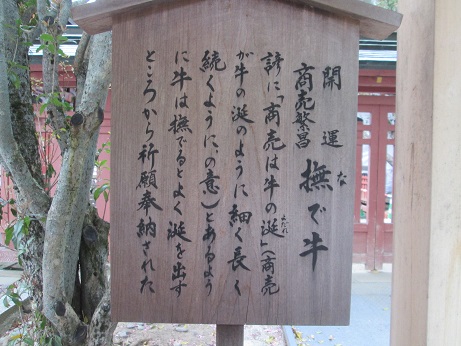 開運
商売繁昌
撫で牛
な
諺に「商売は牛の涎」(商売
よだれ
が牛の涎のように細く長く
続くように、の意)とあるよう
に牛は撫でるとよく涎を出す
ところから祈願奉納された